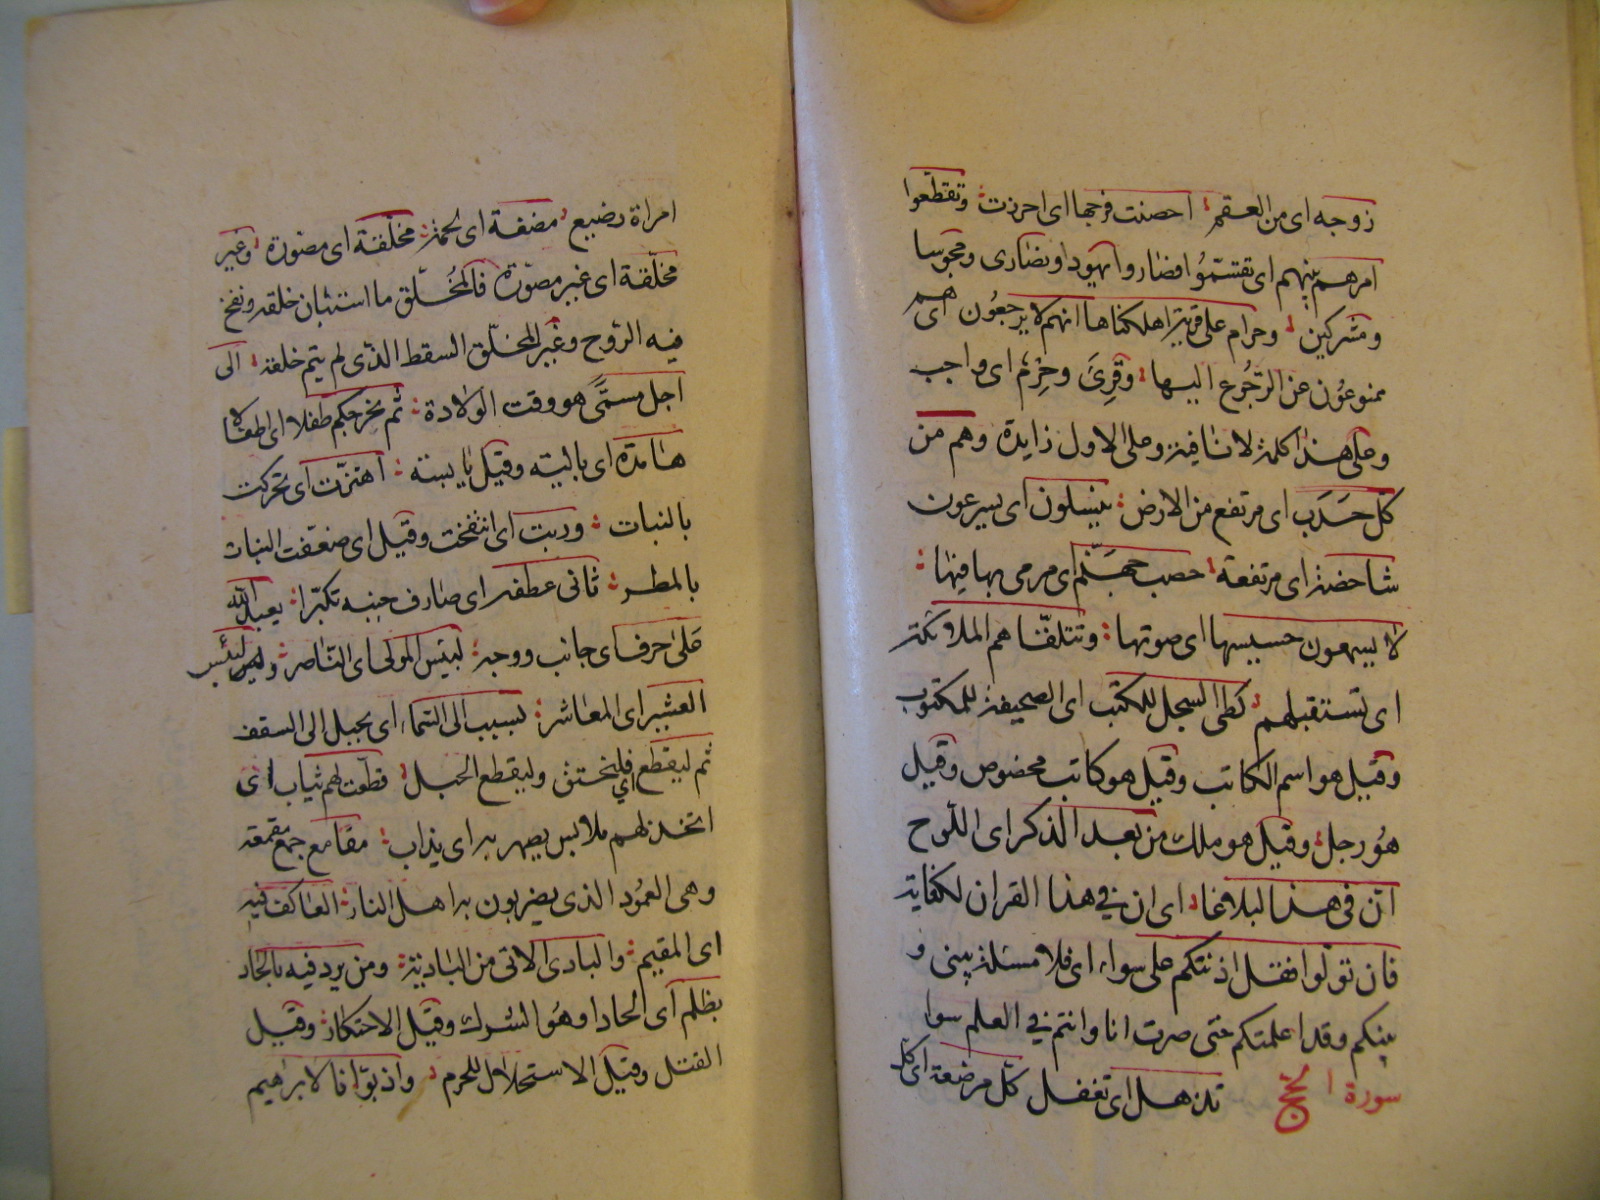 زوجه اى من العقم احصنت فرجها اى احرزت وتقطّعوا
امرهم بينهم اى تقسّمُوا فصاروا يهودا ونصارى ومجوسا
ومشركين وحرام على قرية اهلكناها انهم لا يرجعُون اى هم
ممنوعُون عن الرّجُوع اليها وقرِئَ وحِرْم اى واجب
وعلى هذا كلمة لا نافية وعلى الاول زايدة وهم من
كلّ حَدَب اى مرتفع من الارض ينسلون اى يسرعون
شاخصة اى مرتفعة حصب جهَنّم اى مرمى بها فيها
لا يسمعون حسيسها اى صوتها وتتلقّاهم الملائكة
اى تستقبلهم كطى السجل للكتب اى الصحيفة للمكتوب
وقيل هو اسم الكاتب وقيل هو كاتب مخصوص وقيل
هُو رجل وقيل هو ملك من بعد الذكر اى اللّوح
انّ فى هذا لبلاغا اى ان في هذا القران لكفاية
فان تولّوا فقل اذنتكم على سواء اى فلا مسئلة بينى و
بينكم وقد اعلمتكم حتى صرت انا وانتم في العلم سوا
سورة الحج تذهل اى تغفل كلّ مرضعة اى كلّ
امراة رضيع مضغة اى لحمة مخلّقة اى مصوّرة وغير
مخلّقة اى غير مصوّرة فالمُخلّق ما استبان خلقه ونفخ
فيه الرّوح وغير المخلّق السقط الذّى لم يتم خلقه الى
اجل مسمّى هو وقت الولادة ثم نخرجكم طفلا اى اطفالا
هامدة اى بالية وقيل يابسة اهتزّت اى تحركت
بالنبات وربت اى انتفخت وقيل اى ضعّفت النبات
بالمطر ثانى عطفه اى صارف جنبه تكبّرا يعبد الله
على حرف اى جانب ووجه لبئس المولى اى النّاصر ولبئس
العشير اى المعاشر بسبب الى السّماء اى بحبل الى السقف
ثم ليقطع اي فليختنق وليقطع الحبل قطّعت لهم ثياب اى
اتخذ لهم ملابس يصهر به اى يذاب مقامع جمع مقمعة
وهى العمُود الذى يضربون به اهل النار العاكف فيه
اى المقيم والبادى الاتى من البادية ومن يرد فيه بالحاد
بظلم اى الحادا وهُو الشرك وقيل الاحتكار وقيل
القتل وقيل الاستحلال للحرم واذ بوّانا لابراهيم